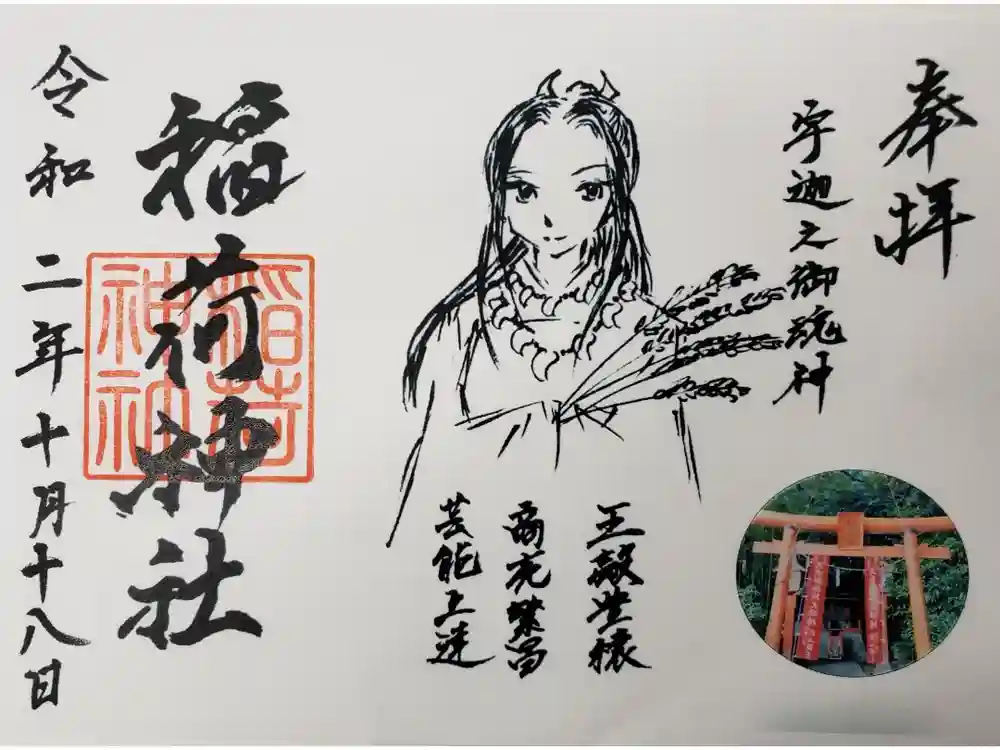 奉拝
宇迦之御魂神
五穀豊穣
商売繁昌
芸能上達
稲荷神社
稲荷
神社
令和二年十月十八日